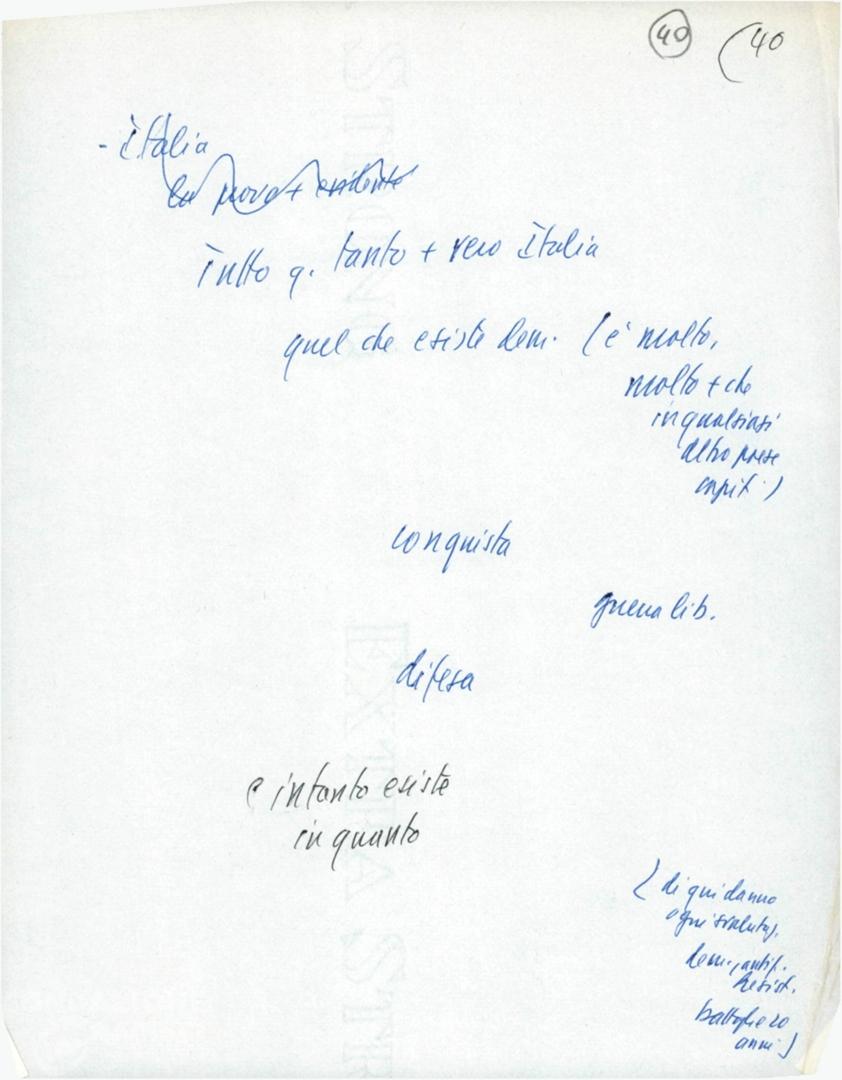 40 (40
- Italia
la prova + evidente
Tutto q. tanto + vero Italia
quel che esiste dem. (è molto,
molto + che
in qualsiasi
altro paese
capit.)
conquista
guerra lib.
difesa
e intanto esiste
in quanto
(di qui danno
ogni svalutaz.
dem., antif.
Resist.
battaglie 20
anni)